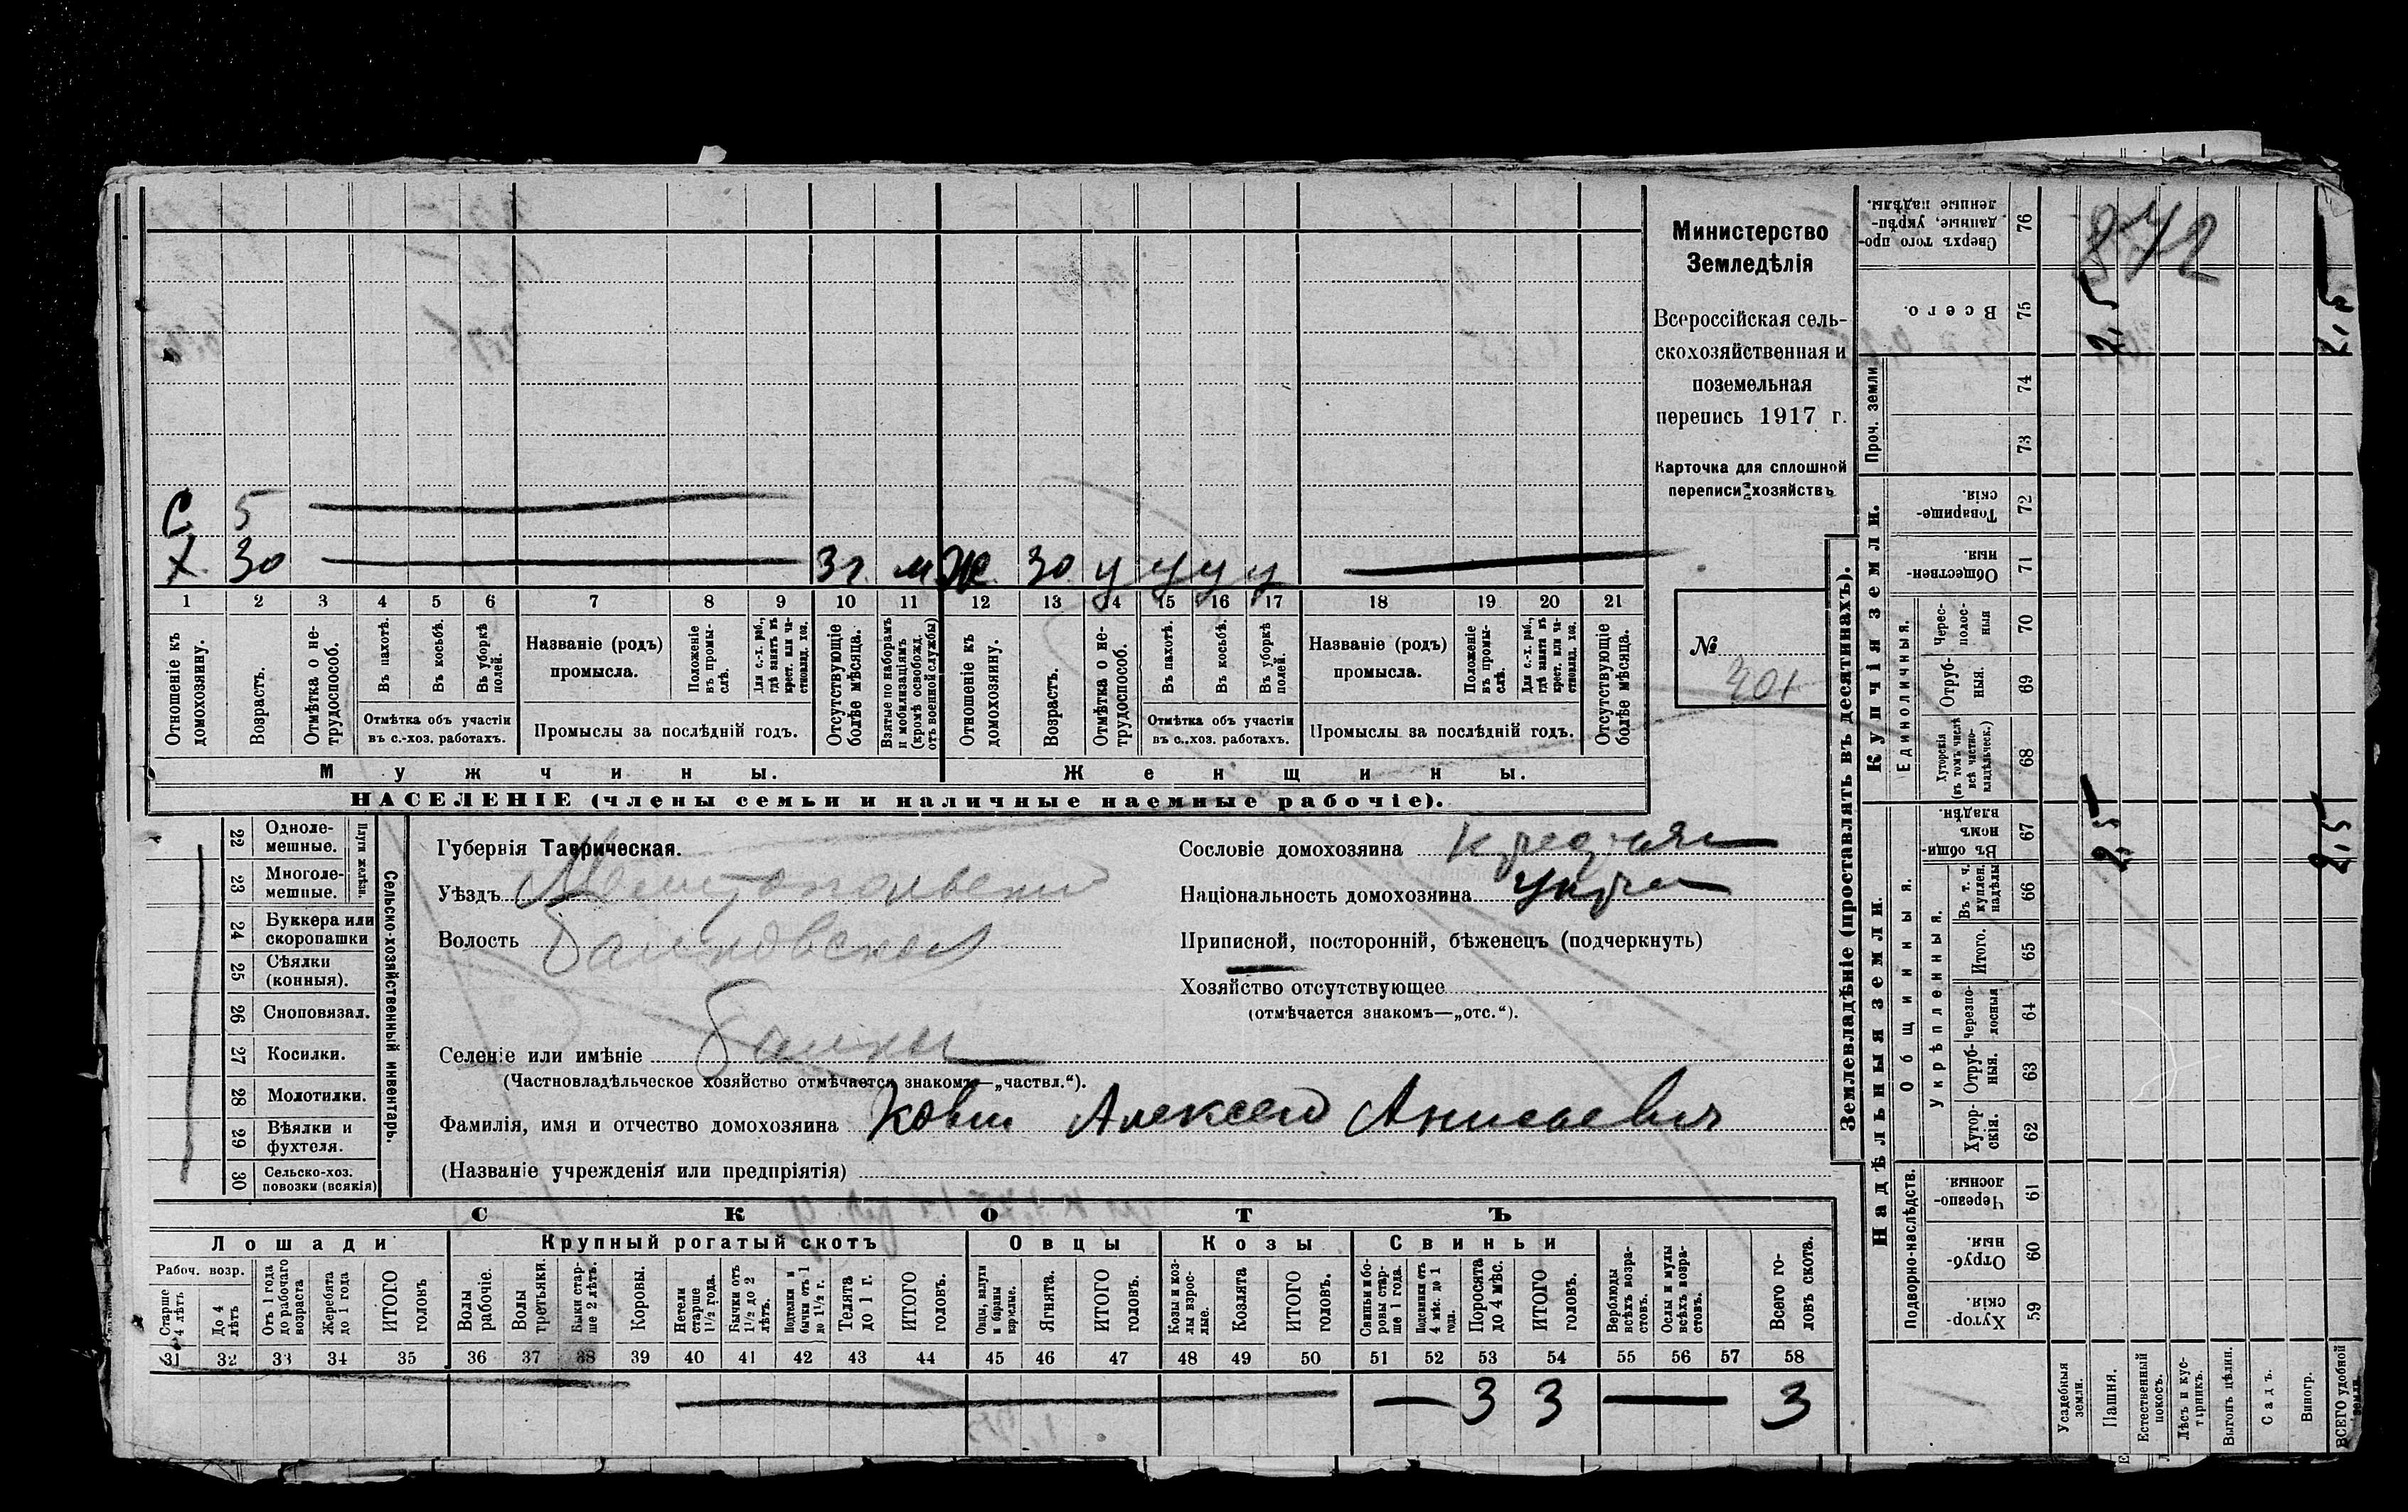 Министерство
Земледѣлія
Всероссійская сель-
скохозяйственная и
поземельная
перепись 1917 г.
Карточка для сплошной
переписи хозяйствъ
№
301
С 5
Х. 30 3 г. м Ж. 30 у у у у
1 2 3 4 5 6 7 8 9 10 11 12 13 14 15 16 17 18 19 20 21
Отношеніе къ домохозяину.
Возрастъ.
Отмѣтка о не-трудоспособ.
Въ пахотѣ.
Въ косьбѣ.
Въ уборкѣ полей.
Отмѣтка объ участіи въ с.-хоз. работахъ.
Названіе (родъ) промысла.
Положеніе въ промы-слѣ.
Для с.-х. раб., гдѣ занятъ въ крест. или ча-стновлад. хоз.
Промыслы за послѣдній годъ.
Отсутствующіе болѣе мѣсяца.
Взятые по наборамъ и мобилизаціямъ (кромѣ освобожд. отъ военной службы)
Отношеніе къ домохозяину.
Возрастъ.
Отмѣтка о не-трудоспособ.
Въ пахотѣ.
Въ косьбѣ.
Въ уборкѣ полей.
Отмѣтка объ участіи въ с..хоз. работахъ.
Названіе (родъ) промысла.
Положеніе въ промы-слѣ.
Для с.-х. раб., гдѣ занята въ крест. или ча-стновлад. хоз.
Промыслы за послѣдній годъ.
Отсутствующіе болѣе мѣсяца.
Мужчины.
Женщины.
НАСЕЛЕНІЕ (члены семьи и наличные наемные рабочіе).
22 Одноле-мешные.
23 Многоле-мешные.
Плуги желѣзн.
24 Буккера или скоропашки
25 Сѣялки (конныя).
26 Сноповязал.
27 Косилки.
28 Молотилки.
29 Вѣялки и фухтеля.
30 Сельско-хоз. повозки (всякія)
Сельско-хозяйственный инвентарь.
Губернія Таврическая.
Уѣздъ Мелитопольский
Волость Балковская
Селеніе или имѣніе Балки
(Частновладѣльческое хозяйство отмѣчается знакомъ—„частвл.“).
Фамилія, имя и отчество домохозяина Ковш Алексей Анисоевич
(Названіе учрежденія или предпріятія)
Сословіе домохозяина
Національность домохозяина Укра
Приписной, посторонній, бѣженецъ (подчеркнуть)
Хозяйство отсутствующее
(отмѣчается знакомъ—„отс.“).
СКОТЪ
Лошади
Крупный рогатый скотъ
Овцы
Козы
Свиньи
Рабоч. возр.
Старше 4 лѣтъ
До 4 лѣтъ
Отъ 1 года до рабочаго возраста
Жеребята до 1 года
ИТОГО головъ
Волы рабочіе.
Волы третьяки.
Быки стар-ше 2 лѣтъ.
Коровы.
Нетели старше 1½ года.
Бычки отъ 1½ до 2 лѣтъ.
Подтелки и бычки отъ 1 до 1½ г.
Телята до 1 г.
ИТОГО головъ.
Овцы, валухи и бараны взрослые.
Ягнята.
ИТОГО головъ.
Козы и коз-лы взрос-лые.
Козлята
ИТОГО головъ.
Свиньи и бо-ровы стар-ше 1 года.
Подсвинки отъ 4 мѣс. до 1 года.
Поросята до 4 мѣс.
ИТОГО головъ.
Верблюды всѣхъ возра-стовъ.
Ослы и мулы всѣхъ возра-стовъ.
Всего го-ловъ скота.
31 32 33 34 35 36 37 38 39 40 41 42 43 44 45 46 47 48 49 50 51 52 53 54 55 56 57 58
3 3 3
Землевладѣніе (проставлять въ десятинахъ).
Купчія земли.
Надѣльныя земли.
Проч. земли
Единоличныя.
Общинныя.
Укрѣпленныя.
Подворно-наслѣдств.
Сверхъ того про-данные, укрѣп-ленные надѣлы. 76
Всего. 75
74
73
Товарище-скія. 72
Обществен-ныя. 71
Черес-полос-ныя 70
Отруб-ныя. 69
Хуторскія (въ томъ числѣ всѣ частно-владѣльческ.) 68
Въ общин-номъ владѣн. 67
Въ т. ч. куплен. надѣлы 66
Итого. 65
Черезпо-лосныя 64
Отруб-ныя. 63
Хутор-скія. 62
Черезпо-лосныя 61
Отруб-ныя. 60
Хутор-скія. 59
Усадебныя земли.
Пашня.
Естественный покосъ.
Лѣсъ и кус-тарникъ.
Выгонъ цѣлин.
Садъ.
Виногр.
ВСЕГО удобной земли.
872
2,5
2,5
2,5
2,5